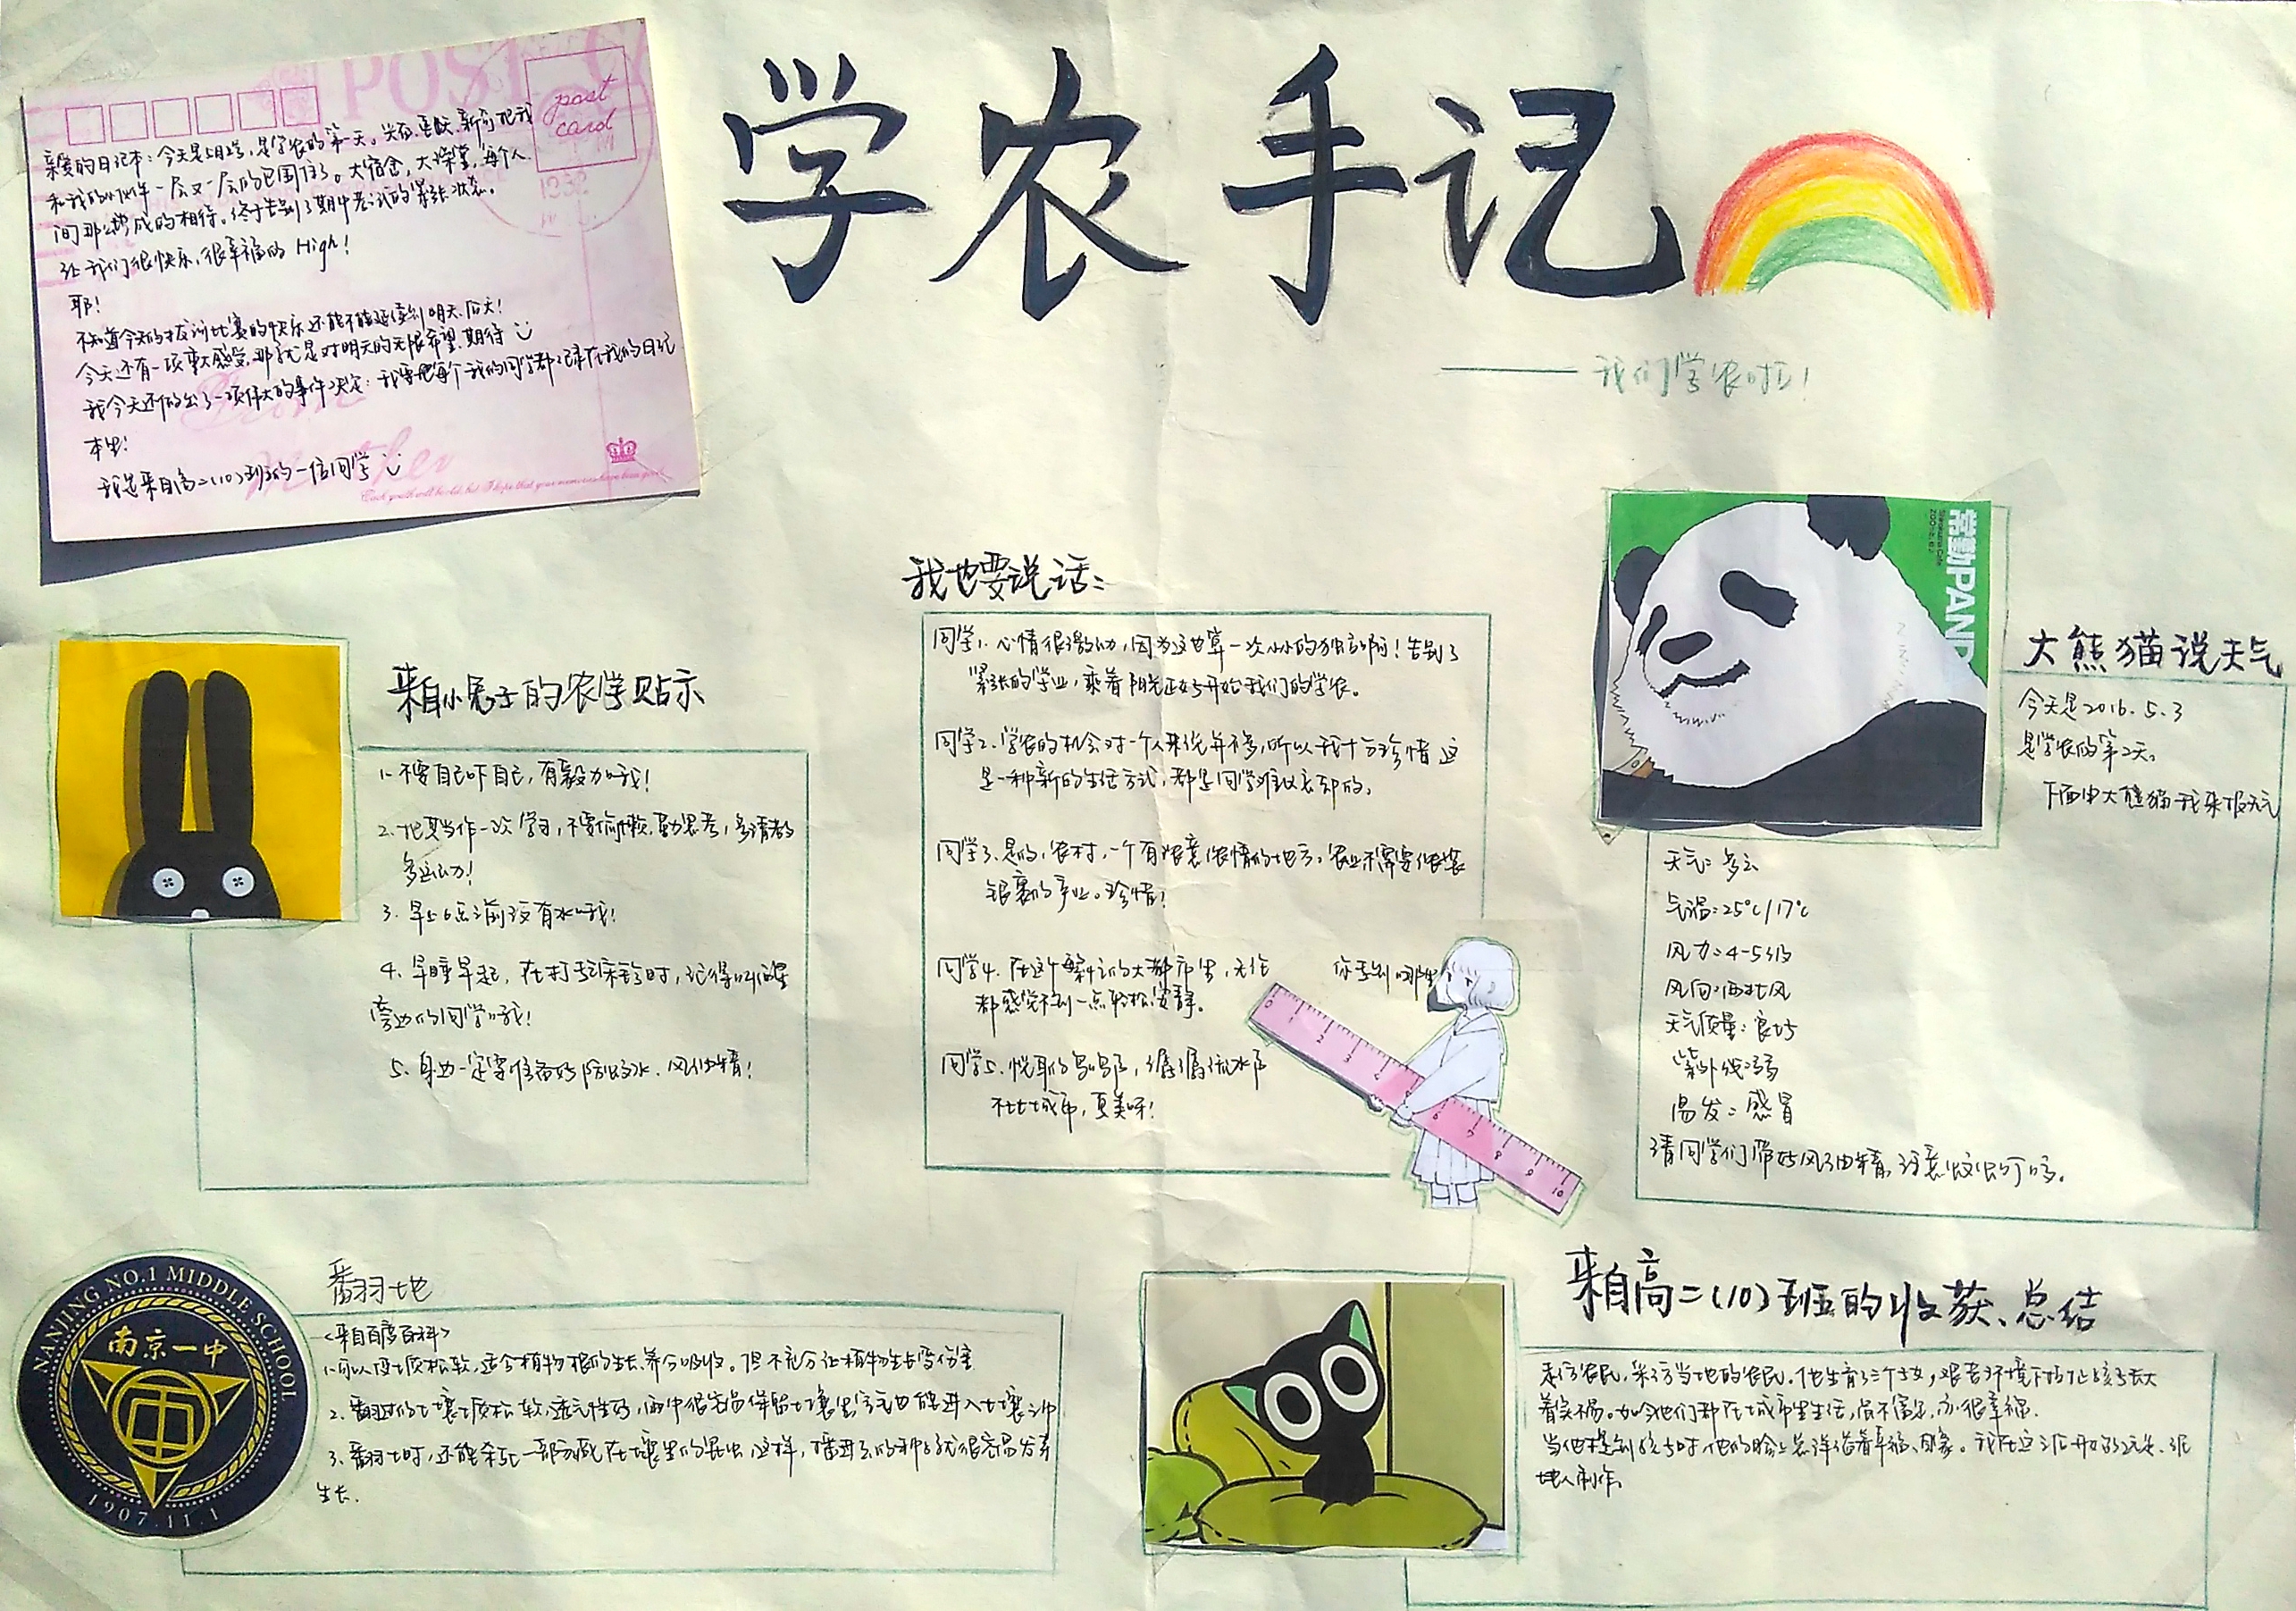 学农手记
——我们学农啦！
POST
post
card
亲爱的日记本：今天是5月2号，是学农的第一天。兴奋、喜悦、新奇把我
和我的伙伴一层又一层的包围住了。大宿舍，大澡堂，每个人
间那么的相待。终于告别了期中考试的紧张状态。
让我们很快乐，很幸福的 High！
耶！
不知道今天的拔河比赛的快乐还能不能延续到明天、后天！
今天还有一项重大感受，那就是对明天的无限希望、期待
我今天还做出了一项伟大的事件决定：我要把每个我的同学都记录在我的日记
本里！
我是来自高二（10）班的一位同学
来自小兔子的农学贴示
1. 不要自己吓自己，有毅力哦！
2. 把其当作一次学习，不要偷懒，勤思考，多请教
多运动！
3. 早5 6点之前没有水哦！
4. 早睡早起，在打起床铃时，记得叫醒
旁边的同学哦！
5. 身边一定要准备好防蚊水、风油精！
我也要说话：
同学1. 心情很激动，因为这也算一次小小的独立啊！告别了
紧张的学业，乘着阳光正好开始我们的学农。
同学2. 学农的机会对一个人来说并不多，所以我十分珍惜 这
是一种新的生活方式，都是同学难以忘却的。
同学3. 是的，农村，一个有浓意浓情的地方。农业不需要
的产业。珍惜！
同学4. 在这个繁忙的大都市里，无论 你走到哪里
都感觉不到一点轻松安静。
同学5. 悦耳的鸟鸣声，潺潺流水声
不比城市，更美呀！
常勤PANDA
大熊猫说天气
今天是2016.5.3
是学农的第2天。
下面由大熊猫我来报天气
天气：多云
气温：25℃/17℃
风力：4-5级
风向：西北风
天气质量：良好
紫外线：弱
易发：感冒
请同学们带好风油精，注意蚊虫叮咬。
NANJING NO.1 MIDDLE SCHOOL
南京一中
1907.11.1
翻地
<来自百度百科>
1. 可以使土质松软，适合植物根的生长、养分吸收。但不充分让植物生长受伤害
2. 翻过的土壤土质松软，透气性好，雨水很容易保留土壤里 空气也能进入土壤之中
3. 翻土时，还能杀死一部分藏在土壤里的昆虫，这样，播进去的种子就很容易发芽
生长。
来自高二（10）班的收获、总结
走访农民，采访当地的农民。他生育了三个子女，艰苦环境下的他让孩子长大
着实不易。如今他们都在城市里生活，虽不富足，亦很幸福。
当他提到孩子时，他的脸上总洋溢着幸福、自豪。